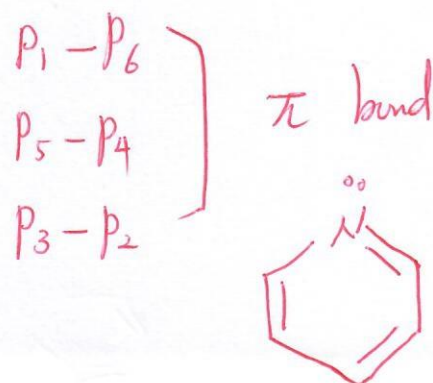 P₁ – P₆
P₅ – P₄
P₃ – P₂
π bond
N